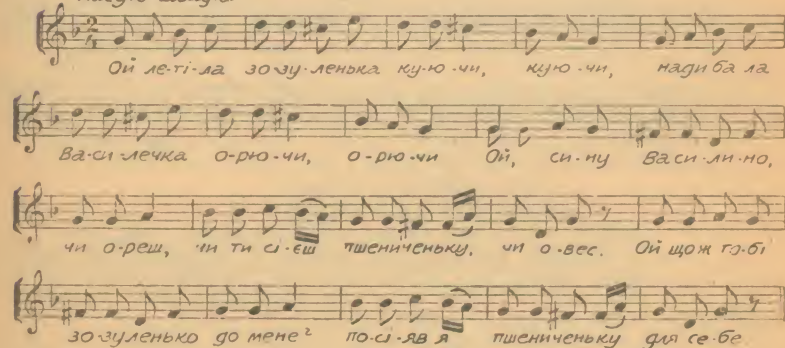 Ой ле-ті-ла зо-зу-ленька ку-ю-чи, кую-чи, надибала
Ва-си-лечка о-рю-чи, о-рю-чи Ой, си-ну Васи-ли-но,
чи о-реш, чи ти сі-єш пшениченьку, чи о-вес. Ой щож то-бі
зо-зуленько до мене? по-сі-яв я пшениченьку для се-бе.